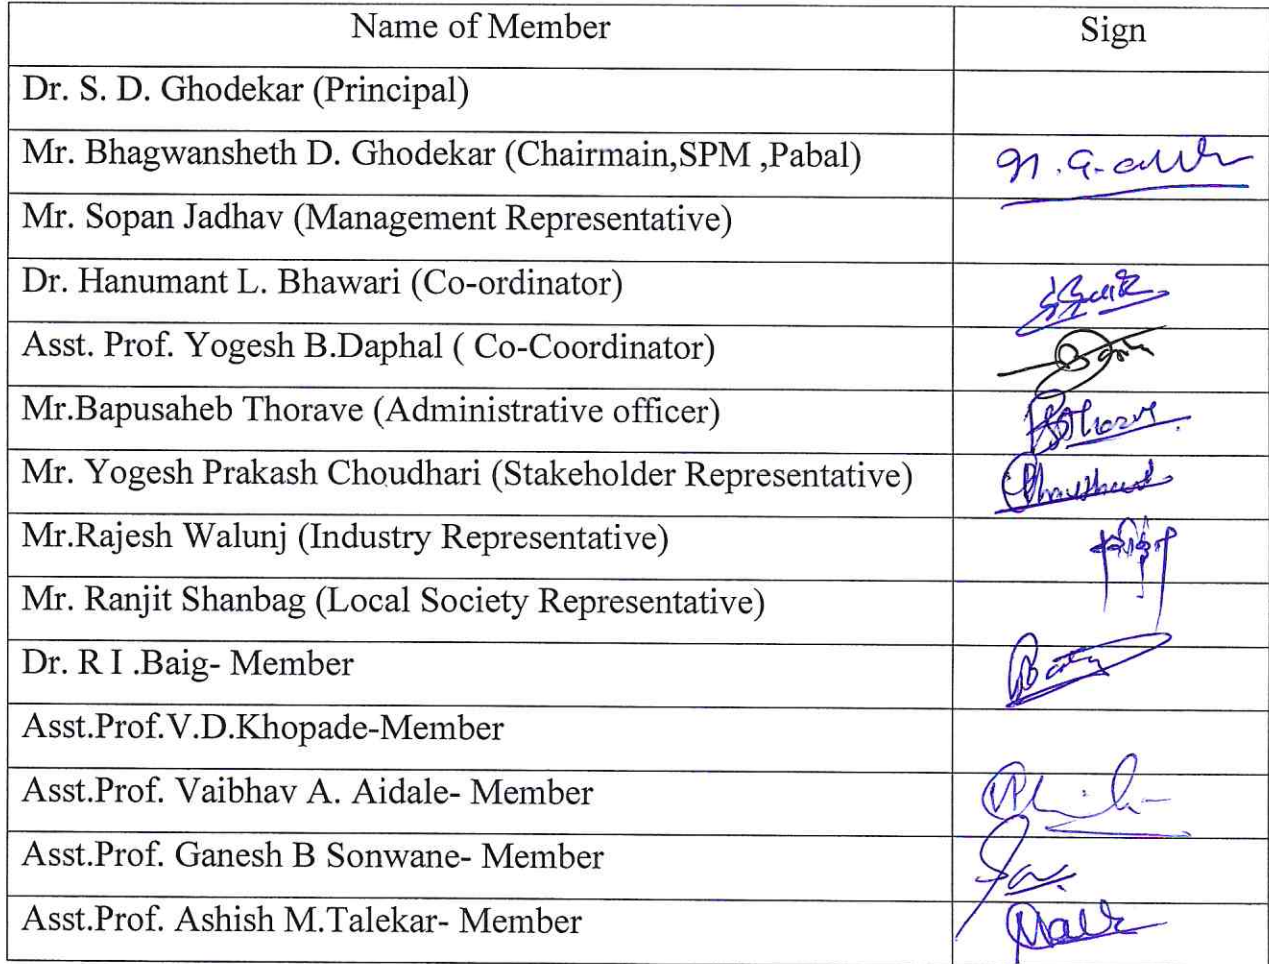 Name of Member Sign
Dr. S. D. Ghodekar (Principal)
Mr. Bhagwansheth D. Ghodekar (Chairmain,SPM ,Pabal)
Mr. Sopan Jadhav (Management Representative)
Dr. Hanumant L. Bhawari (Co-ordinator)
Asst. Prof. Yogesh B.Daphal ( Co-Coordinator)
Mr.Bapusaheb Thorave (Administrative officer)
Mr. Yogesh Prakash Choudhari (Stakeholder Representative)
Mr.Rajesh Walunj (Industry Representative)
Mr. Ranjit Shanbag (Local Society Representative)
Dr. R I .Baig- Member
Asst.Prof.V.D.Khopade-Member
Asst.Prof. Vaibhav A. Aidale- Member
Asst.Prof. Ganesh B Sonwane- Member
Asst.Prof. Ashish M.Talekar- Member